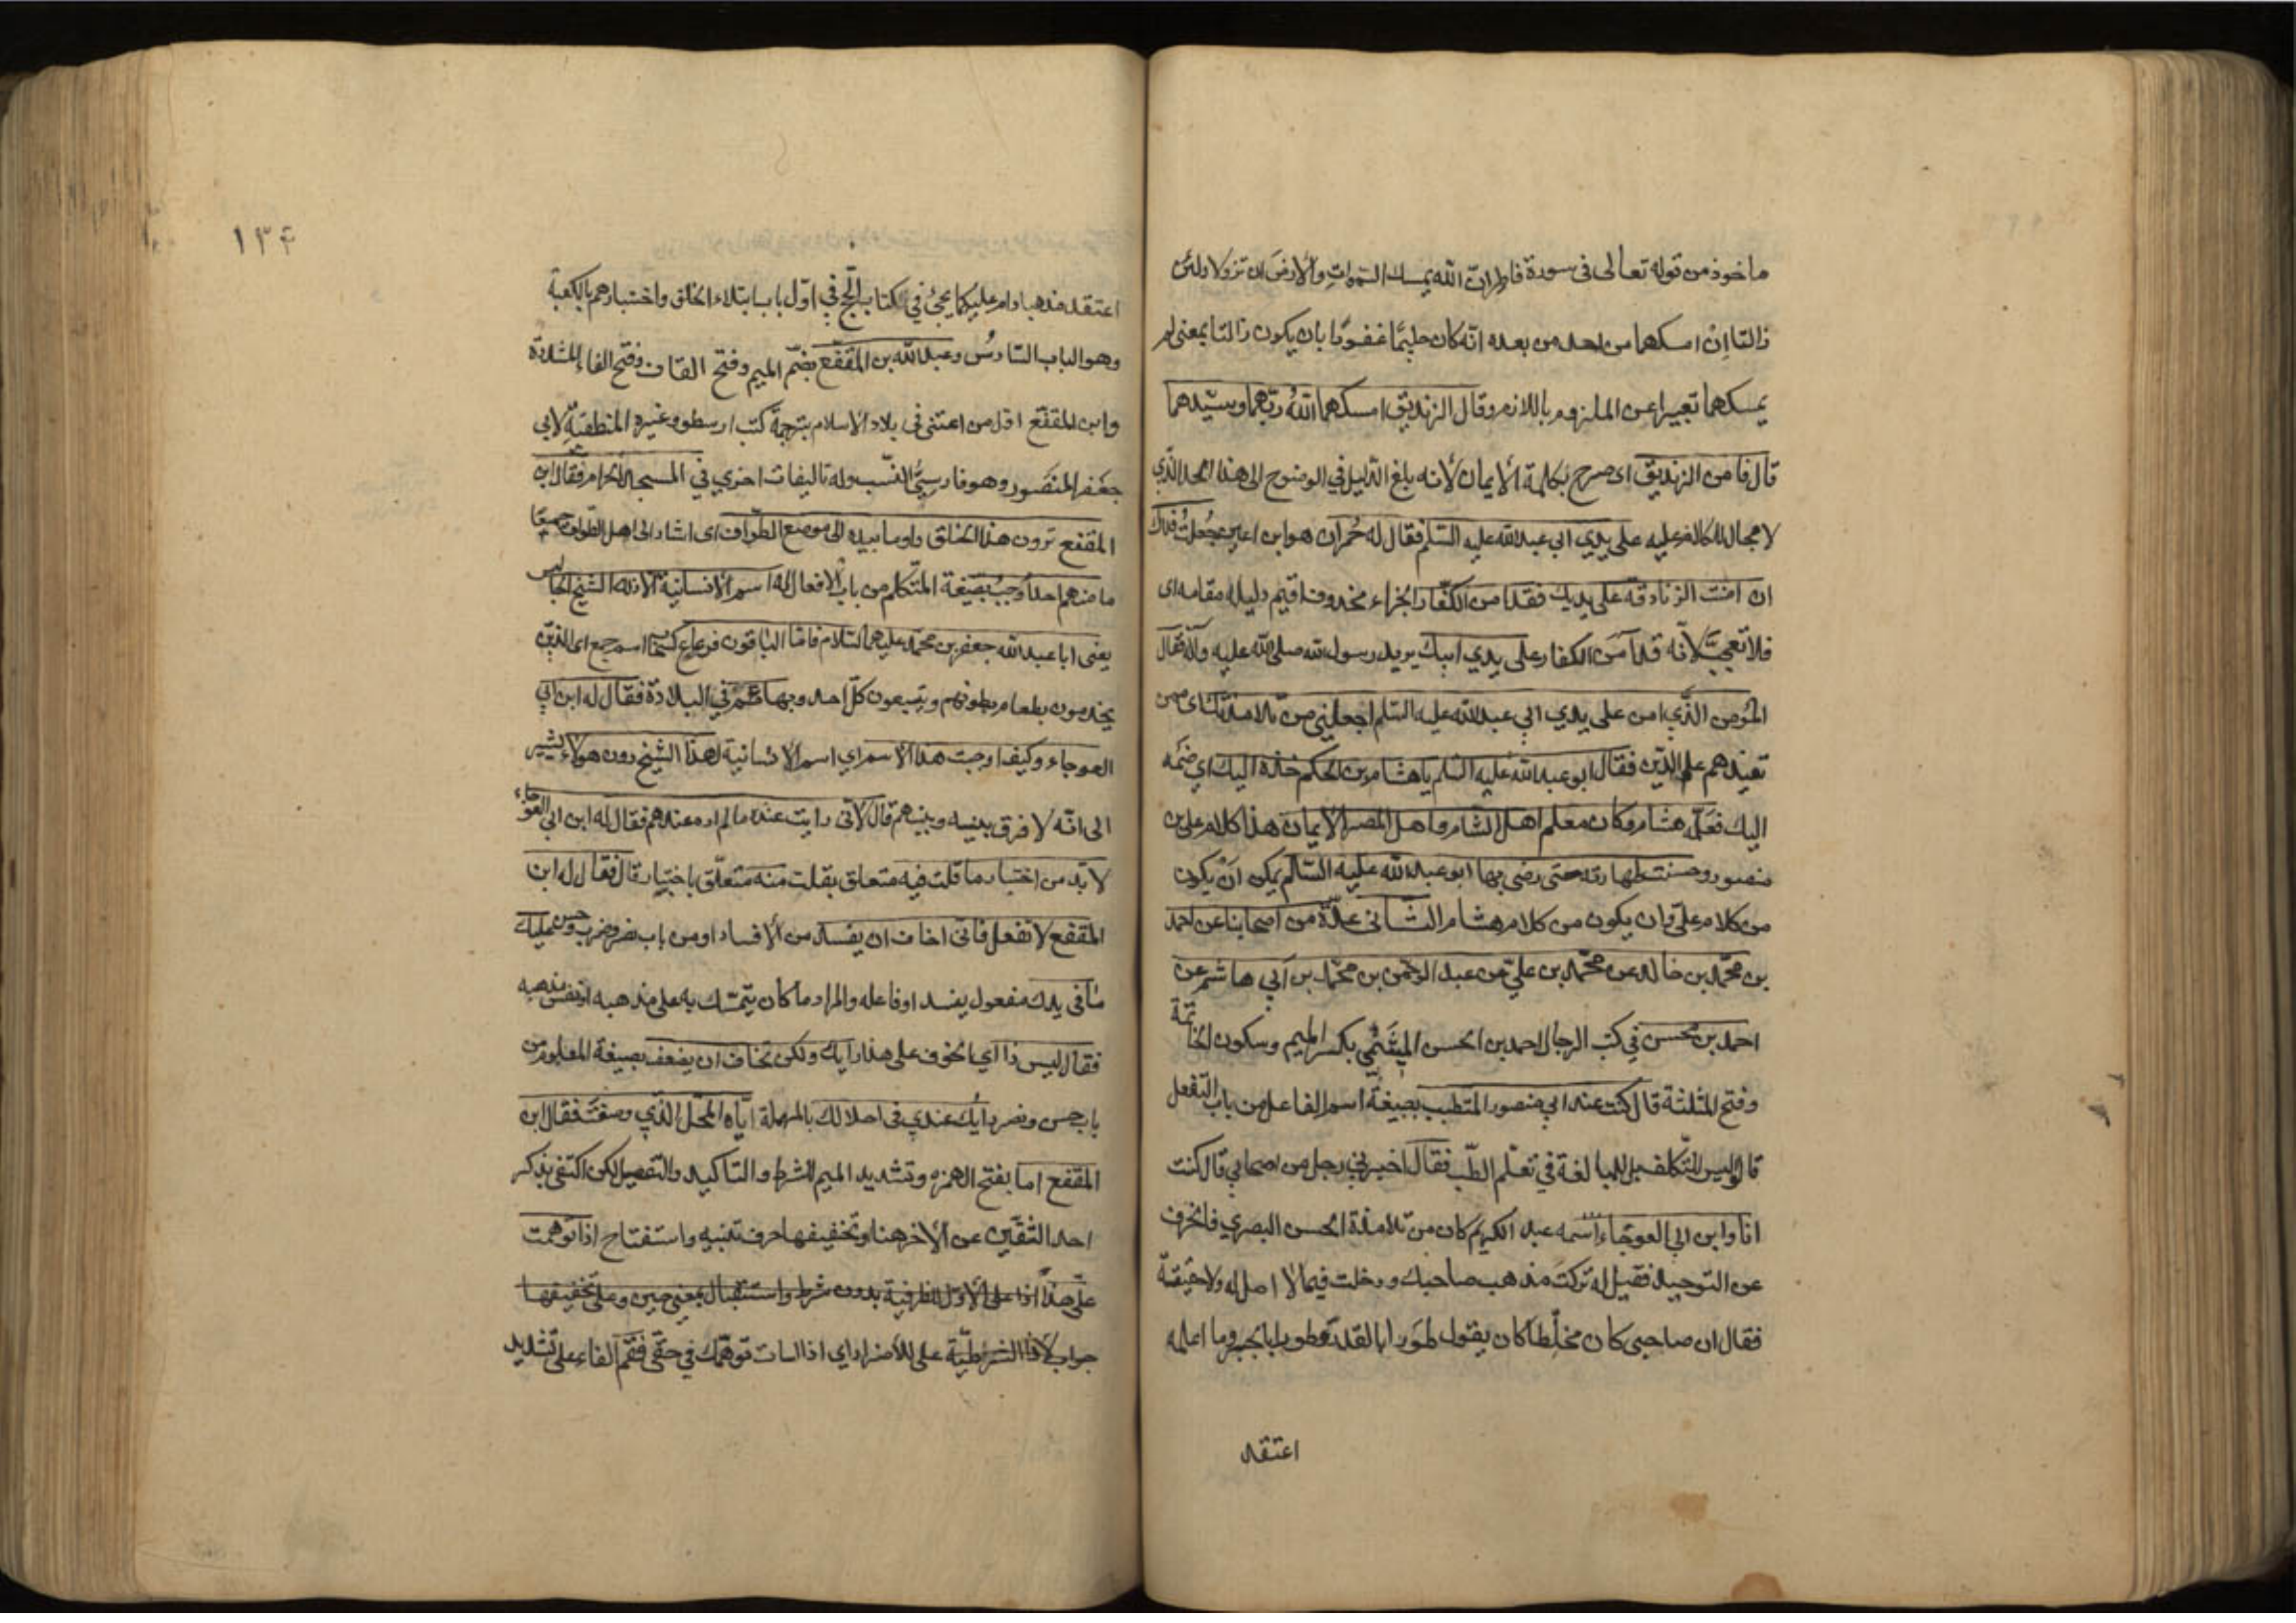 ماخوذ من قوله تعالى فى سورة فاطر ان الله يمسك السموات والارض ان تزولا ولئن
زالتا اِنْ امسكهما من احد من بعده انّه كان حليمًا غفورًا بان يكون زالتا بمعنى لم
يمسكهما تعبيرا عن الملزوم باللازم وقال الزنديق امسكهما اللهُ ربّهما وسيّدهما
قال فامن الزنديق اى صرح بكلمة الايمان لانه بلغ الدليل في الوضوح الى هذا الحد الذي
لا مجال للمكالمة عليه على يدي ابي عبد الله عليه السّلم فقال له حُمران هو ابن اعين جُعلتُ فداك
ان امنت الزنادقة على يديك فقد امن الكفّار الجزاء محذوف اقيم دليله مقامه اى
فلا تعجب لانّه قد آمَن الكفار على يدي ابيك يريد رسول الله صلى الله عليه وآله فقال
المؤمن الذّي امن على يدي ابي عبد الله عليه السّلم اجعلني من تلامذتك اى ممن
تعينهم على الدّين فقال ابو عبد الله عليه السّلم يا هشام بن الحكم خذه اليك اي ضمّه
اليك فعلّمه هشام وكان معلم اهل الشام واهل المصر الايمان هذا كلام على بن
منصور وحسنت طهارته حتى رضى بها ابو عبد الله عليه السّلم يمكن انْ يكون
من كلام علىّ وان يكون من كلام هشام الثّانى عدّة من اصحابنا عن احمد
بن محمّد بن خالد عن محمّد بن عليّ عن عبد الرحمن بن محمّد بن أبي هاشم عن
احمد بن محسن في كتب الرجال احمد بن الحسن الميثمي بكسر الميم وسكون الخاتمة
وفتح المثلثة قال كنت عند ابي منصور المتطبب بصيغة اسم الفاعل من باب التفعل
قالوا ليس للتكلف بل للمبالغة في تعلّم الطّب فقال اخبرني رجل من اصحابي قال كنت
انا وابن ابي العوجاء اسمه عبد الكريم كان من تلامذة الحسن البصري فانحرف
عن التوحيد فقيل له تركت مذهب صاحبك ودخلت فيما لا اصل له ولا حقيقة
فقال ان صاحبى كان مخلّطا كان يقول طَورا بالقدر وطورا بالجبر وما اعلمه
اعتقد
١٣۴
اعتقد مذهبا دام عليه كما يجيُ في كتاب الحج في اوّل باب ابتلاء الخلق واختبارهم بالكعبة
وهو الباب السّادسُ وعبد الله بن المقفّع بضمّ الميم وفتح القاف وفتح الفاء المشدّدة
وابن المقفّع اوّل من اعتنى فى بلاد الاسلام بترجمة كتب ارسطو وغيره المنطقيّة لابى
جعفر المنصور وهو فارسيُّ النّسب وله تاليفات اخرى في المسجد الحرام فقال ابن
المقفع ترون هذا الخلق واوما بيده الى موضع الطّواف اى اشار الى اهل الطواف جميعا
ما منهم احد اُوجبُ بصيغة المتكلم من باب الافعال له اسم الانسانية الا ذلك الشيخ الجالس
يعنى ابا عبد الله جعفر بن محمّد عليهما السّلام فامّا الباقون فرعاع كسماء اسم جمع اى الذين
يخدمون بطعام بطونهم ويتبعون كلّ احد وبهائم في البلادة فقال له ابن ابي
العوجاء وكيف اوجبت هذا الاسم اي اسم الانسانية لهذا الشيخ دون هؤلاء يشير
الى انّه لا فرق بينه وبينهم قال لانّى رايت عنده ما لم اره عندهم فقال له ابن ابي العوجاء
لا بدّ من اختبار ما قلت فيه متعلق بقلت منه متعلّق باختبار قال فقال له ابن
المقفع لا تفعل فانّى اخاف ان يفسد من الافساد او من باب نصر وضرب وحسن عليك
ما فى يدك مفعول يفسد او فاعله والمراد ما كان يتمسّك به على مذهبه او نفس مذهبه
فقال ليس ذا اي الخوف على هذا رايك ولكن تخاف ان يضعف بصيغة المعلوم من
باب حسن ونصر رايك عندي فى احلالك بالمهملة ايّاه المحلّ الذّي وصفتَ فقال ابن
المقفع اما بفتح الهمزه وتشديد الميم للشرط والتاكيد والتفصيل لكن اكتفى بذكر
احد الشّقّين عن الاخر هنا وتخفيفها حرف تنبيه واستفتاح اذا توهمت
علىّ هذا اذا على الاوّل لظرفية بدون شرط واستقبال بمعنى حين وعلى تخفيفها
جواب لاذا الشرطيّة على للاضرار اي اذا اسات توهمك في حقّى فقم الفاء على تشديد